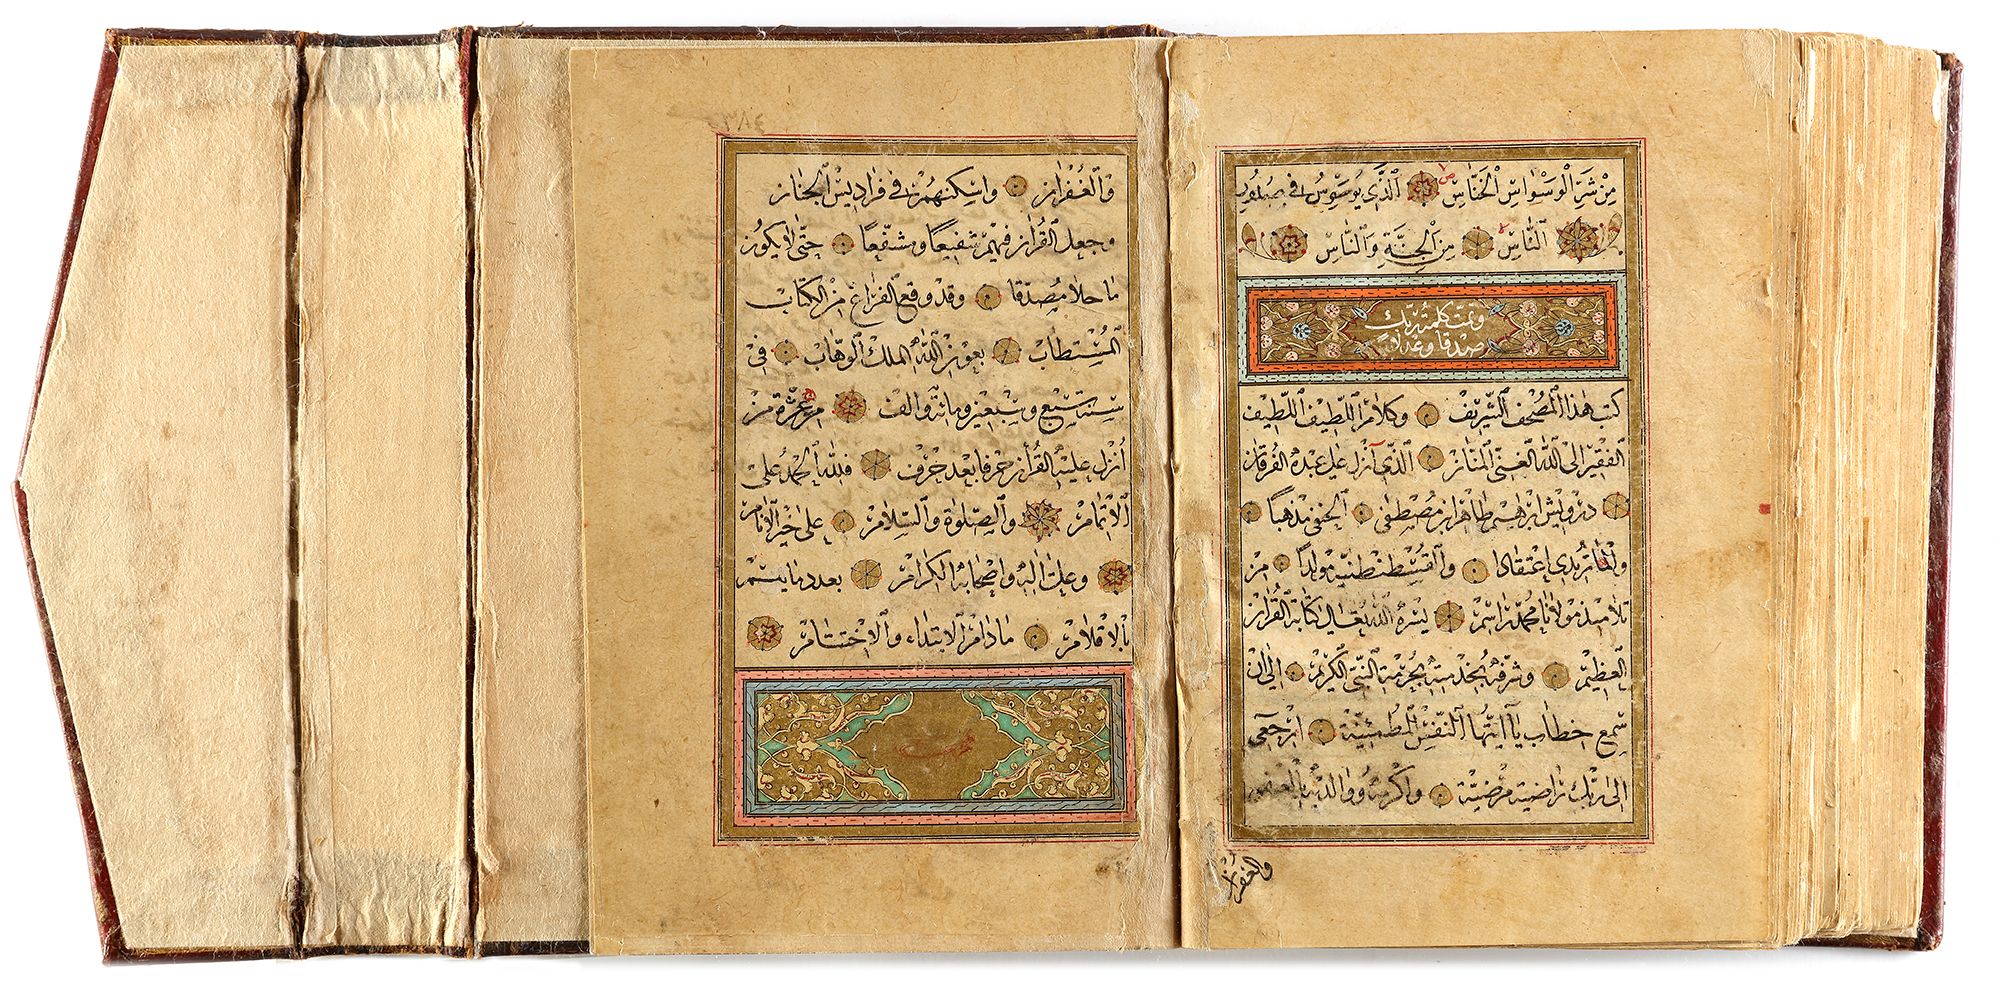 مِنْ شَرِّ الْوَسْوَاسِ الْخَنَّاسِ الَّذِي يُوَسْوِسُ فِي صُدُورِ
النَّاسِ مِنَ الْجِنَّةِ وَالنَّاسِ
وتمت كلمة ربك
صدقا وعدلا
كتب هذا المصحف الشريف وكلام اللطيف اللطيف
الفقير الى الله الغني المنان الذي انزل على عبده الفرقان
درويش ابرهيم طاهر ابن مصطفى الحنفي مذهبا
والماتريدي اعتقادا والقسطنطنية مولدا من
تلاميذ مولانا محمد راسم يسره الله تعالى كتابة القران
العظيم وشرفه بخدمته بحرمة النبي الكريم الى ان
سمع خطاب يا ايتها النفس المطمئنة ارجعي
الى ربك راضية مرضية واكرمه ووالديه بالعفو
والغفران
٣٨٤
والغفران واسكنهم في فراديس الجنان
وجعل القران فيهم شفيعا ومشفعا حتى لا يكون
ماحلا مصدقا وقد وقع الفراغ من الكتاب
المستطاب بعون الله الملك الوهاب في
سنة سبع وسبعين ومائة والف من هجرة من
انزل عليه القران حرفا بعد حرف فلله الحمد على
الاتمام والصلوة والسلام على خير الانام
وعلى اله واصحابه الكرام بعدد ما يتم
بالاقلام ما دام الابتداء والاختتام